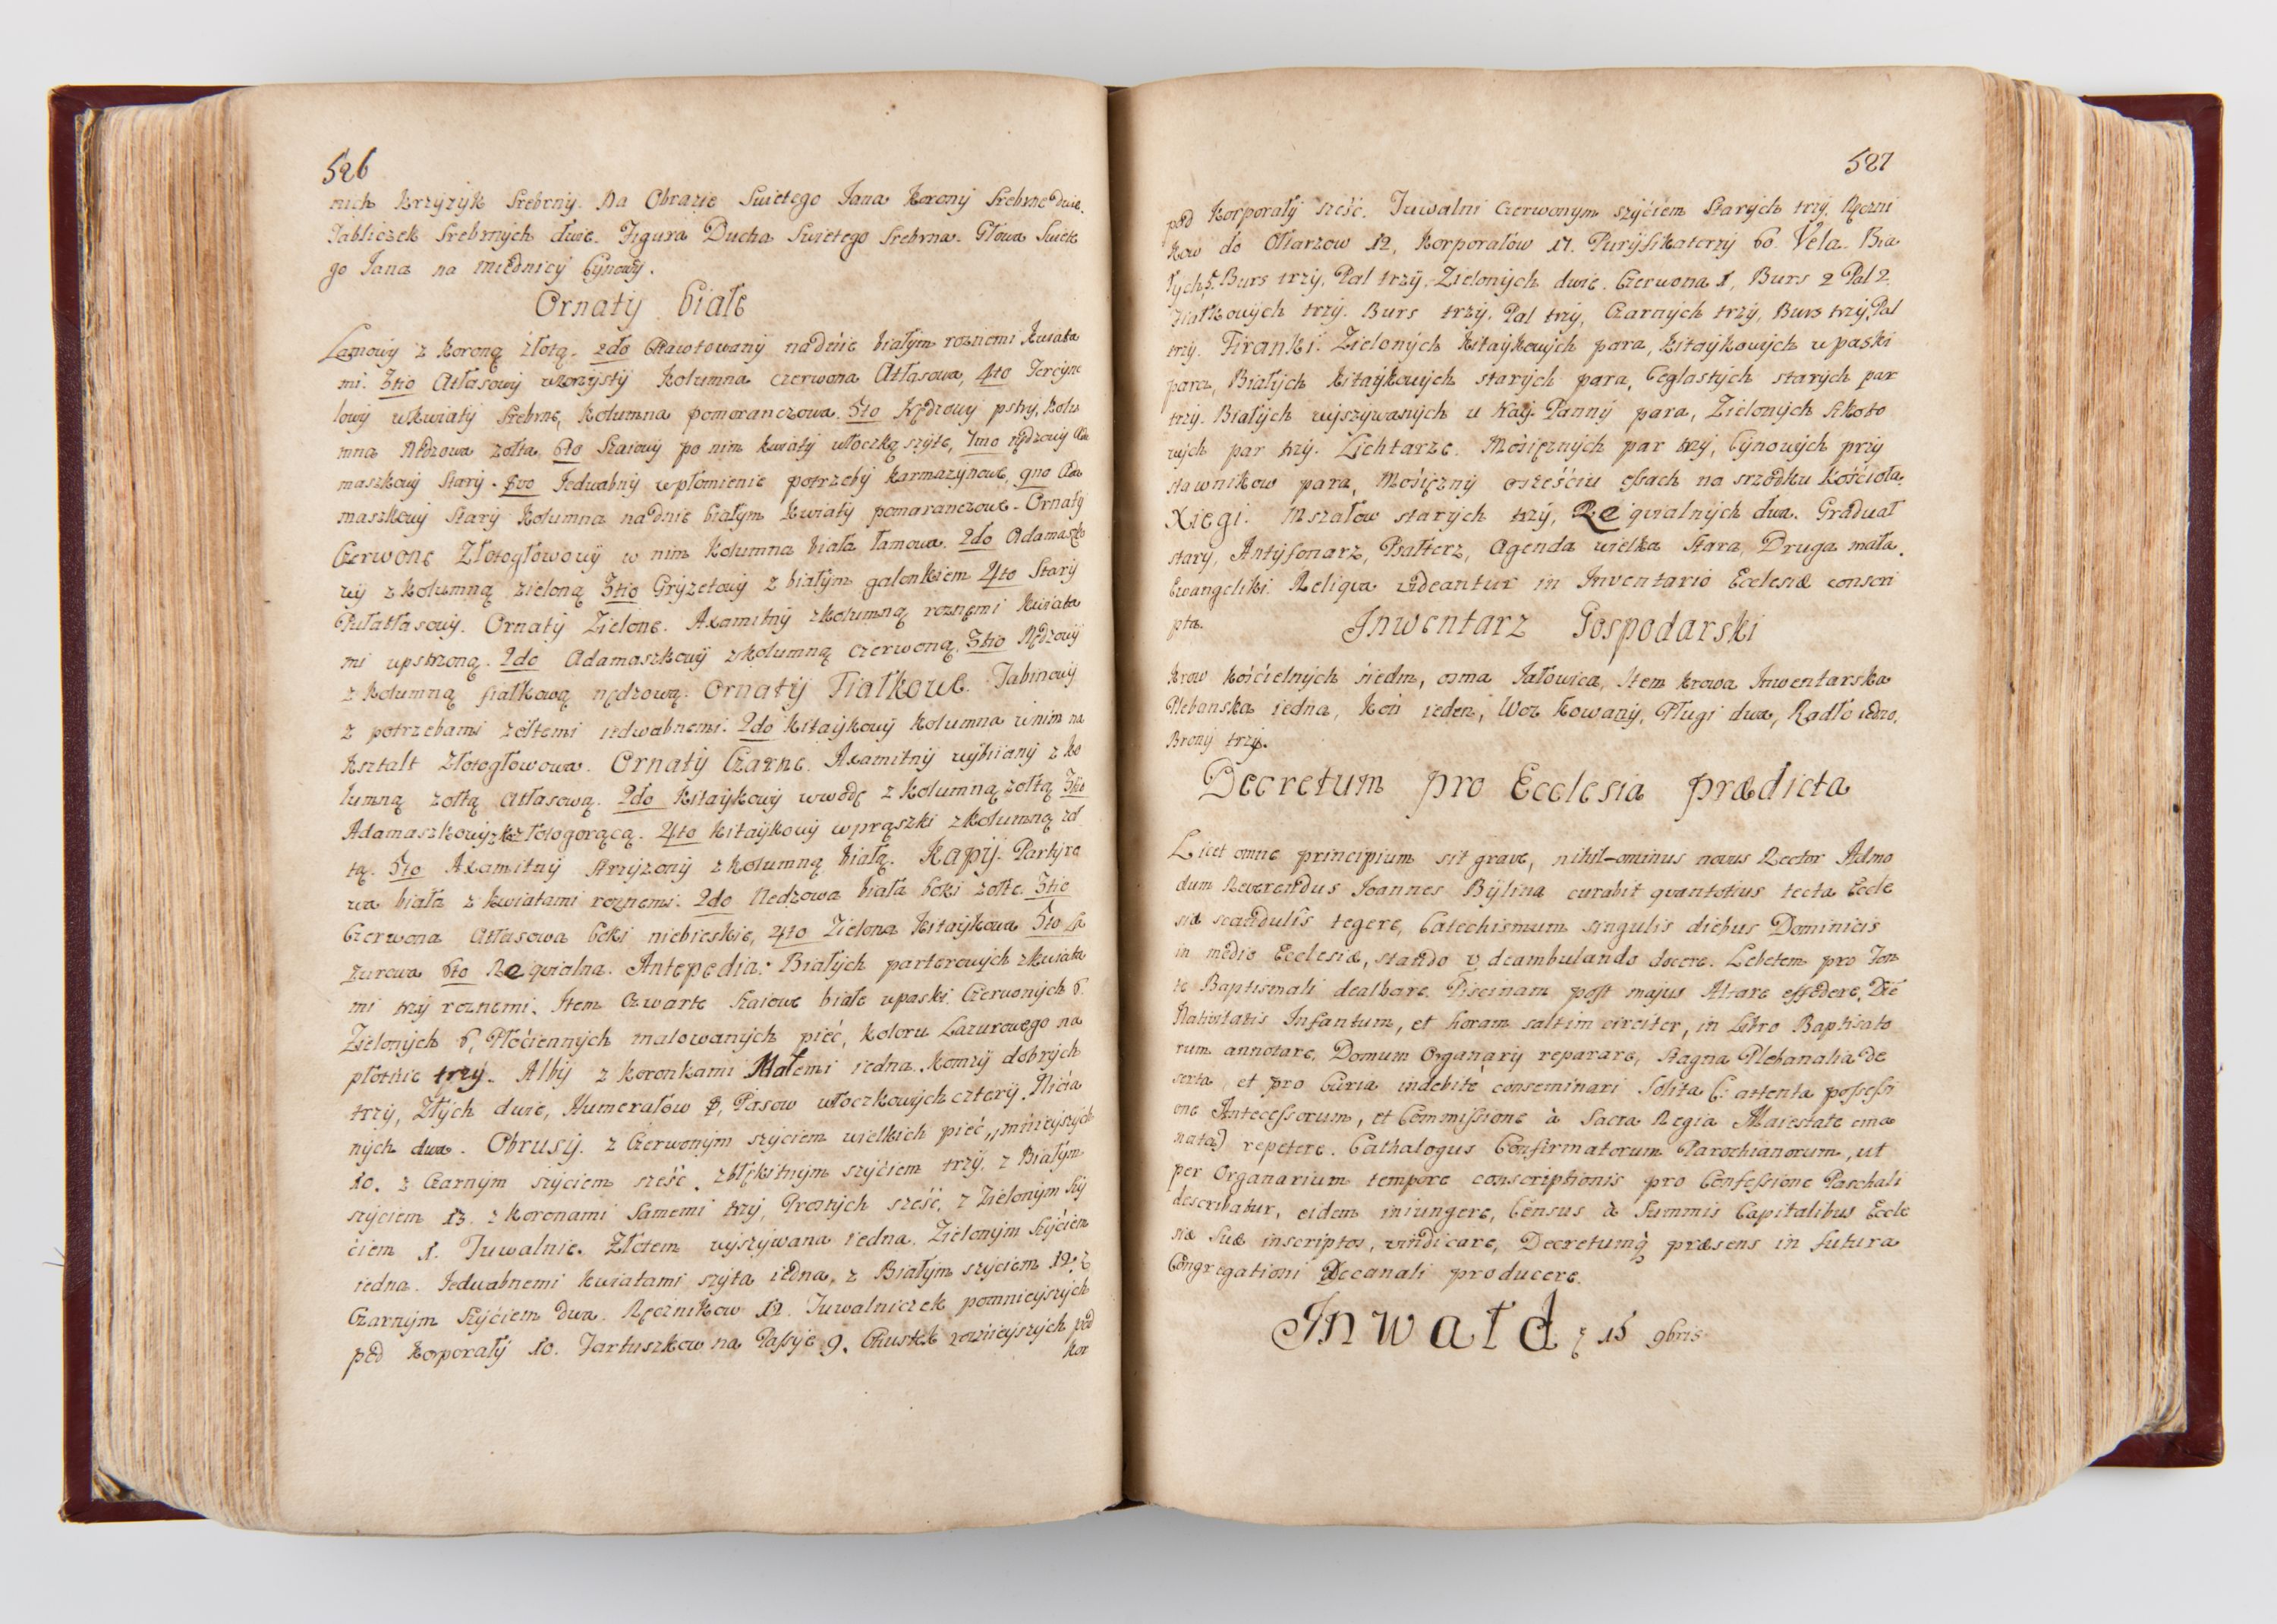 526
nich Krzyzyk Srebrny. Na Obrazie Swietego Jana Korony Srebrne dwie.
Tabliczek Srebrnych dwie. Figura Ducha Swietego Srebrna. Głowa Swiete
go Jana na miednicy Cynowey.
Ornaty białe
Lamowy z Koroną złotą. 2do Hawtowany nadnie białym roznemi kwiata
mi. 3tio Atłasowy wzorzysty Kolumna czerwona Atłasowa, 4to Tercyne
lowy w kwiaty Srebrne, kolumna pomoranczowa. 5to Nędzowy pstry, kolu
mna Nędzowa zołta, 6to Szaiowy po nim kwiaty włoczką szyte, 7mo nędzowy
maszkowy Stary. 8vo Jedwabny w płomienie potrzeby karmazynowe, 9no Ada
maszkowy Stary kolumna nadnie białym kwiaty pomaranczowe. Ornaty
Czerwone Złotogłowowy w nim kolumna biała łamowa. 2do Adamaszko
wy z kolumną zieloną 3tio Gryzetowy z białym galonkiem 4to Stary
Pułatłasowy. Ornaty Zielone. Axamitny z kolumną roznemi kwiata
mi upstrzoną. 2do Adamaszkowy z kolumną czerwoną, 3tio Nędzowy
z kolumną fiałkową nędzową. Ornaty Fiałkowe. Tabinowy
z potrzebami zołtemi iedwabnemi. 2do Kitaykowy kolumna w nim na
kształt złotogłowowa. Ornaty Czarne. Axamitny wybiiany z ko
lumną zołtą Atłasową. 2do Kitaykowy wwodę z kolumną zołtą 3tio
Adamaszkowy złotogorącą. 4to Kitaykowy w prąszki z kolumną zoł
tą. 5to Axamitny strzyzony z kolumną białą. Kapy. Partyro
wa biała z kwiatami roznemi. 2do Nedzowa biała boki zołte. 3tio
Czerwona Atłasowa boki niebieskie, 4to Zielona Kitaykowa 5to La
zurowa 6to Reqwialna. Antepedia: Białych parterowych z kwiata
mi trzy roznemi. Item Czwarte Szaiowe białe w paski. Czerwonych 6.
Zielonych 6, Płóciennych malowanych pięć, koloru Lazurowego na
płotnie trzy. Alby z koronkami Małemi iedna. Komzy dobrych
trzy, Złych dwie, Humerałow 8, Pasow włoczkowych cztery. Nicia
nych dwa. Obrusy. z Czerwonym szyciem wielkich pięć, mnieyszych
10. z Czarnym szyciem sześć. z błękitnym szyciem trzy. z Białym
szyciem 13. z koronami Samemi trzy, Prostych sześć, z Zielonym szy
ciem 1. Tuwalnie. Złotem wyszywana iedna. Zielonym szyciem
iedna. Jedwabnemi kwiatami szyta iedna, z Białym szyciem 12. z
Czarnym szyciem dwa. Ręcznikow 12. Tuwalniczek pomnieyszych
pod korporały 10. Fartuszkow na Passye 9. Chustek pod
kor
527
pod Korporały sześć. Tuwalni czerwonym szyciem Starych trzy. Ręczni
kow do Ołtarzow 12, Korporałow 17. Puryfikaterzy 60. Vela. Bia
łych 5. Burs trzy, Pal trzy. Zielonych dwie. Czerwona 1, Burs 2 Pal 2.
Fiałkowych trzy. Burs trzy. Pal trzy, Czarnych trzy, Burs trzy, Pal
trzy. Firanki. Zielonych kitaykowych para, kitaykowych w paski
para, Białych kitaykowych starych para, Ceglastych starych par
trzy. Białych wyszywanych u Nay. Panny para, Zielonych
wych par trzy. Lichtarze. Mosięznych par trzy, Cynowych przy
stawnikow para, Mosięzny osześciu na srzodku Kościoła.
Xięgi. Mszałow starych trzy, Reqwialnych dwa. Graduał
stary, Antyfonarz, Psałterz, Agenda wielka stara, Druga mała.
Ewangeliki. Reliqva videantur in Inventario Ecclesiæ conscri
pta.
Inwentarz Gospodarski
Krow kościelnych siedm, osma Jałowica, Item krowa Inwentarska
Plebanska iedna, Koń ieden, Woz kowany, Pługi dwa, Radło iedno,
Brony trzy.
Decretum pro Ecclesia prædicta
Licet omne principium sit grave, nihil-ominus novus Rector Admo
dum Reverendus Joannes Bylina curabit qvantotius tecta Eccle
siæ scandulis tegere, Catechismum singulis diebus Dominicis
in medio Ecclesiæ, stando v deambulando docere. Lebetem pro Fon
te Baptismali dealbare. Piscinam post majus Altare effodere, Die
Nativitatis Infantum, et horam saltim circiter, in Libro Baptisato
rum annotare, Domum Organarij reparare, Stagna Plebanalia De
serta, et pro Curia indebite conseminari solita (: attenta possessi
one Antecessorum, et Commissione à Sacra Regia Maiestate ema
nata) repetere. Cathalogus Confirmatorum Parochianorum, ut
per Organarium tempore conscriptionis pro Confessione Paschali
describatur, eidem iniungere, Census à Summis Capitalibus Eccle
siæ Suæ inscriptos, vindicare, Decretumq præsens in futura
Congregationi Decanali producere.
Inwałd 15 9bris